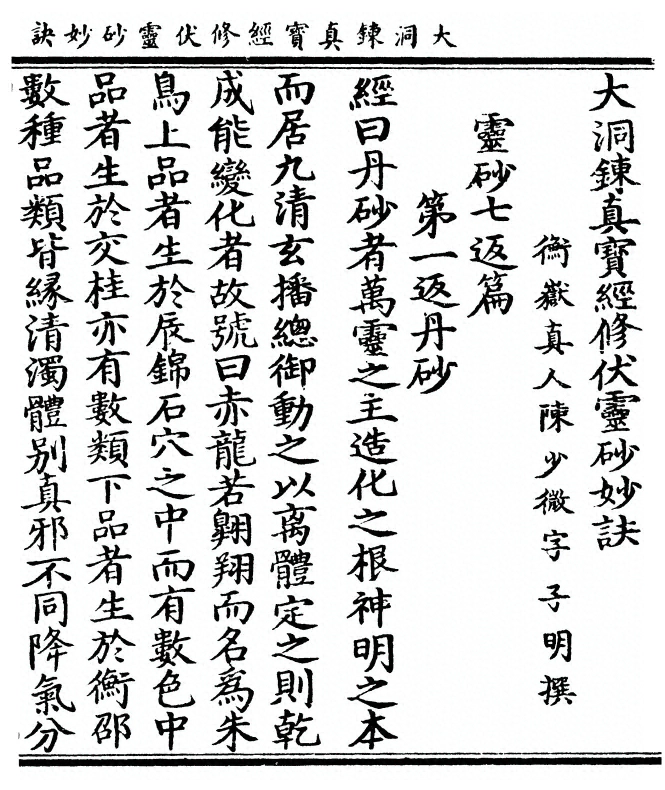 大洞鍊真寶經修伏靈砂妙訣
大洞鍊真寶經修伏靈砂妙訣
衡嶽真人陳少微字子明撰
靈砂七返篇
第一返丹砂
經曰丹砂者萬靈之主造化之根神明之本
而居九清玄播總御動之以离體定之則乾
成能變化者故號曰赤龍若翺翔而名爲朱
鳥上品者生於辰錦石穴之中而有數色中
品者生於交桂亦有數類下品者生於衡邵
數種品類皆緣清濁體别真邪不同降氣分